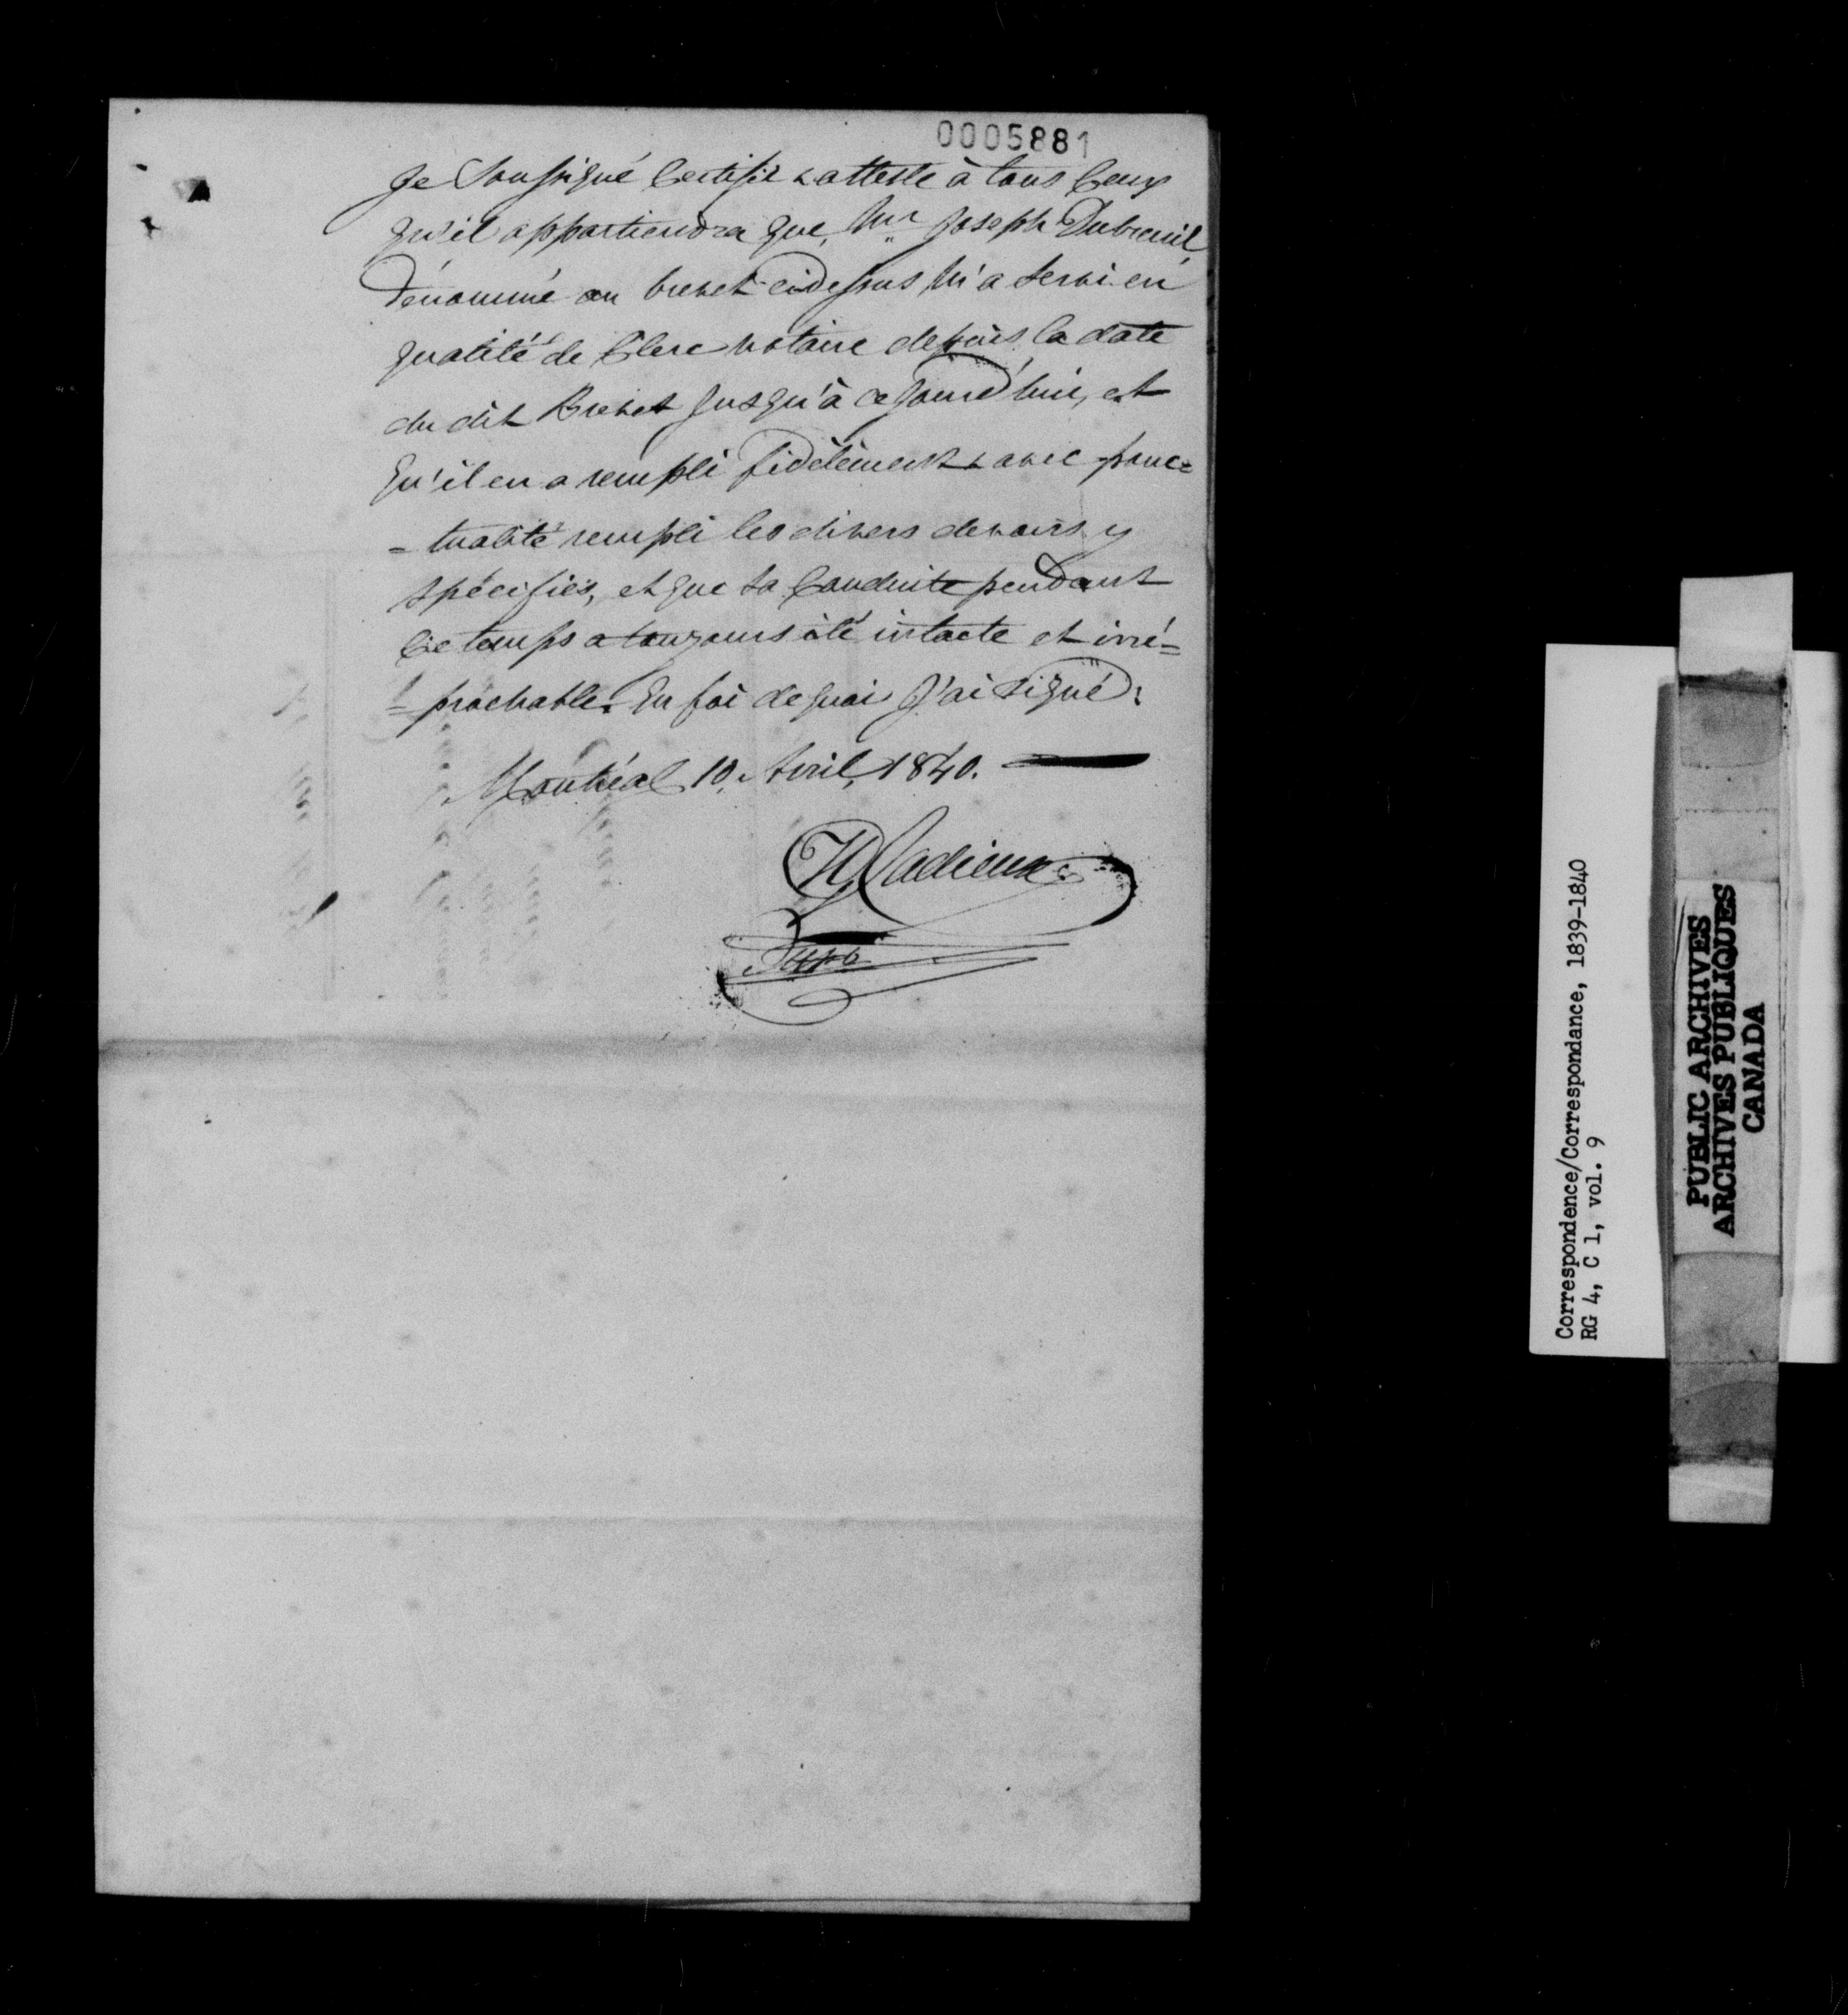 0005881
Je Soussigné Certifie & atteste à tous Ceux
qu'il appartiendra que, Mr. Joseph Dubreuil,
dénommé au brevet cidessus m'a servi en
qualité de Clerc notaire depuis la date
du dit Brevet jusqu'à ce jourd'hui, et
qu'il en a rempli fidèlement & avec ponc=
=tualité rempli les divers devoirs y
spécifiés, et que sa Conduite pendant
Ce temps a toujours été intacte et irré=
=prochable. En foi de quoi J'ai signé.
Montréal 10, Avril, 1840.
Cadieux
Correspondence/Correspondance, 1839-1840
RG 4, C 1, vol. 9
PUBLIC ARCHIVES
ARCHIVES PUBLIQUES
CANADA